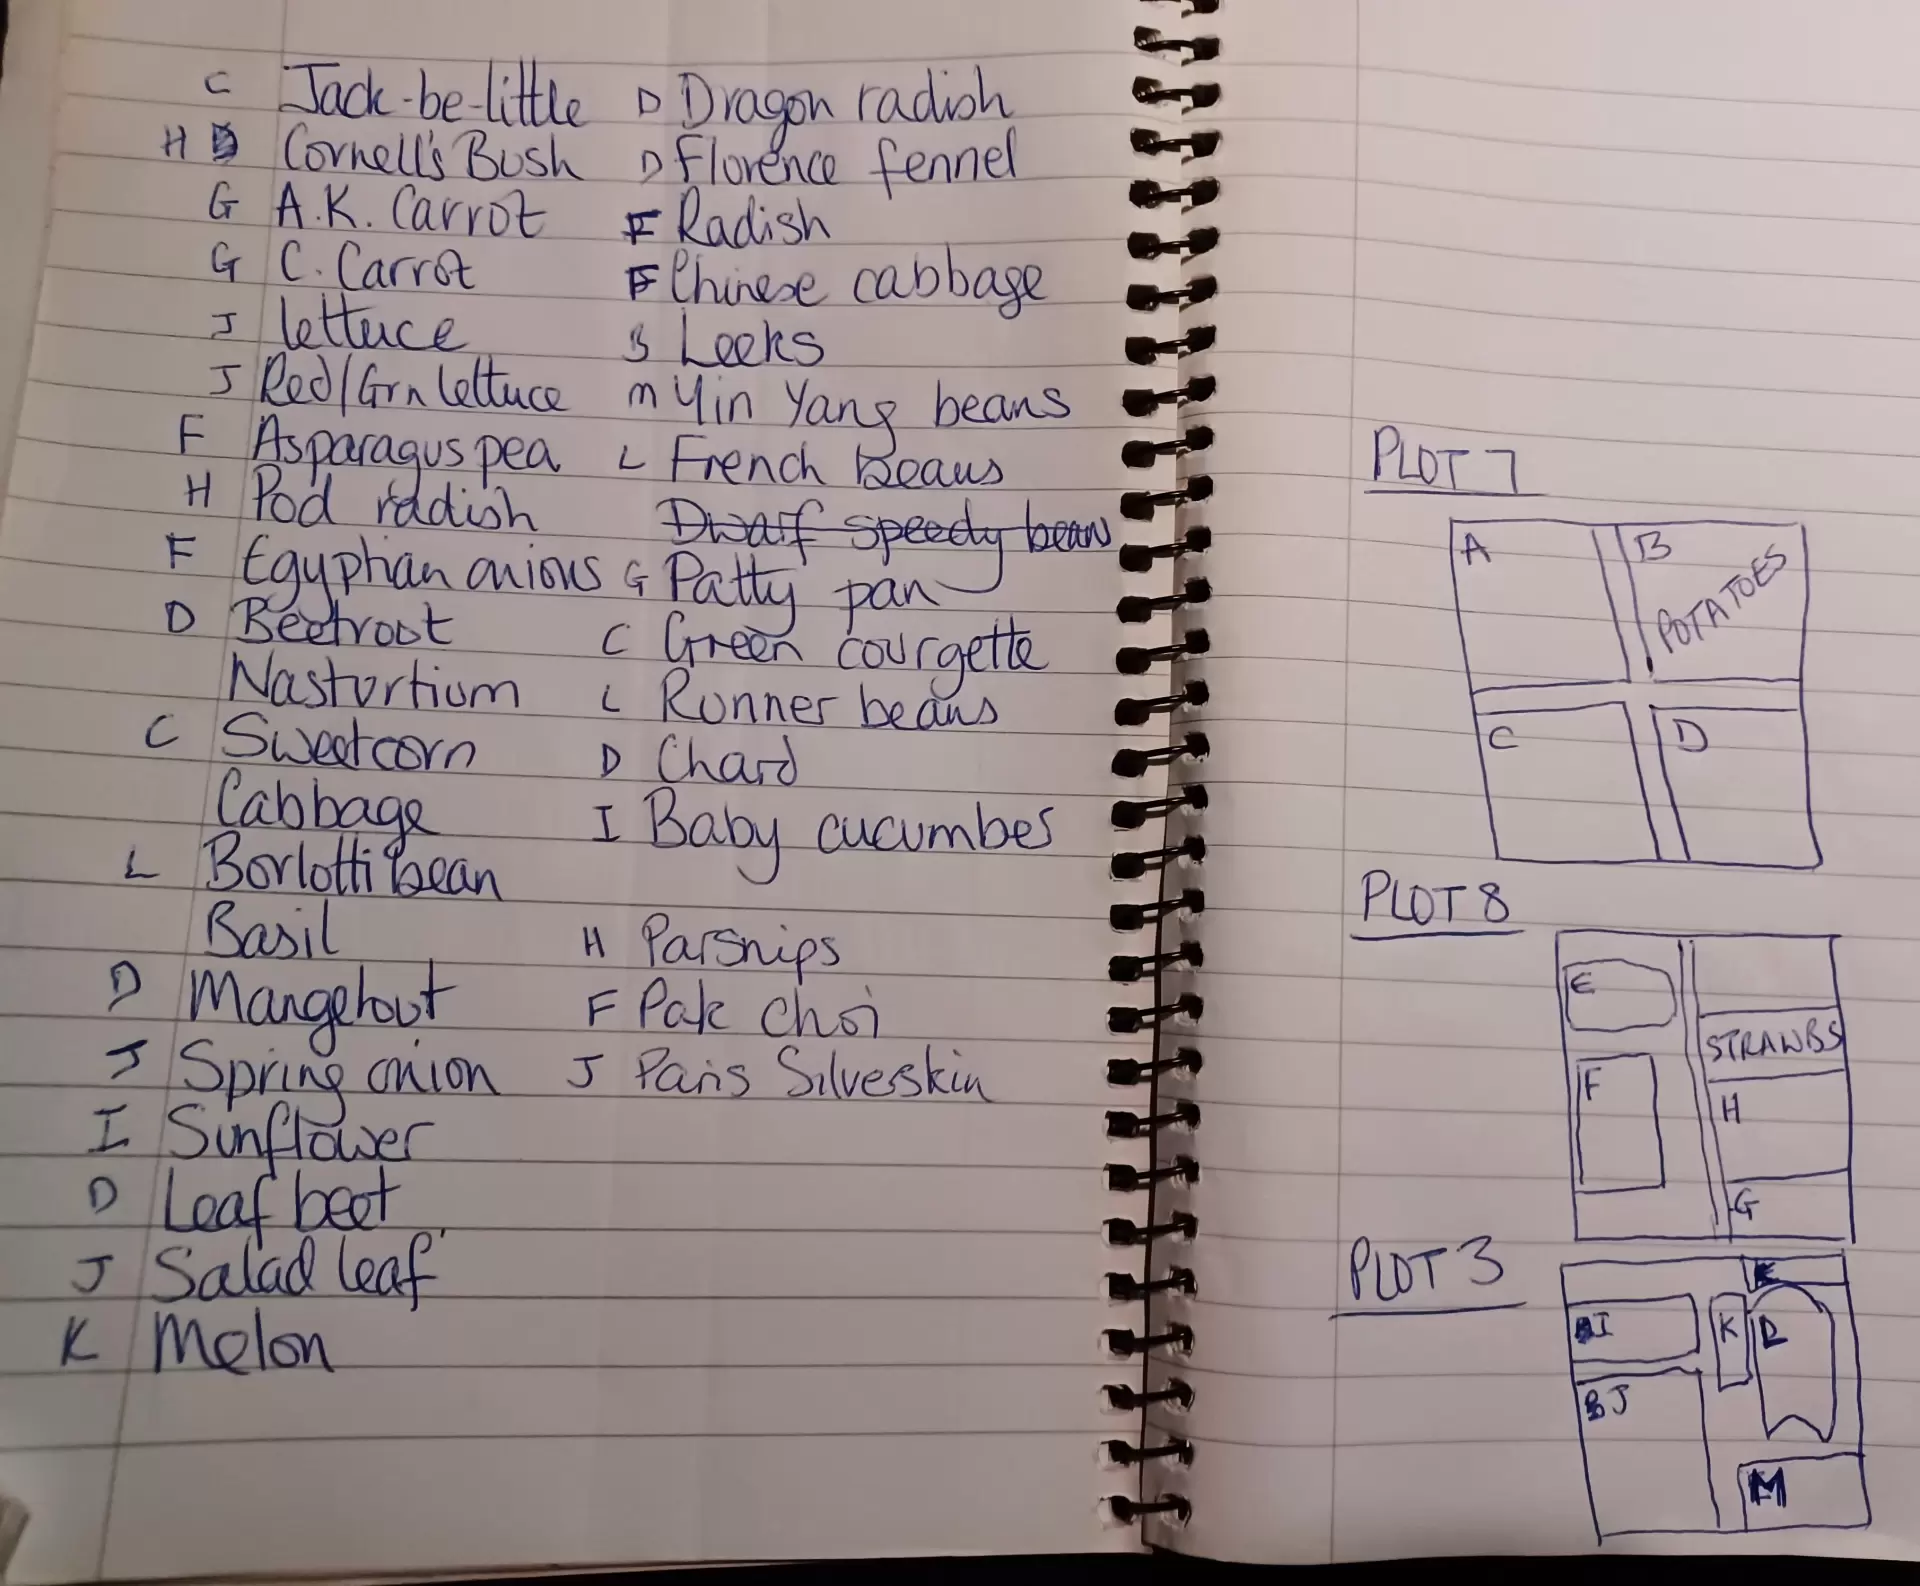 C Jack-be-little
H Cornell's Bush
G A.K. Carrot
G C. Carrot
J lettuce
J Red/Grn lettuce
F Asparagus pea
H Pod radish
F Egyphan onions
D Beetroot
Nasturtium
C Sweetcorn
Cabbage
L Borlotti bean
Basil
D Mangetout
J Spring onion
I Sunflower
D Leaf beet
J Salad leaf
K Melon
D Dragon radish
D Florence fennel
F Radish
F Chinese cabbage
B Leeks
M Yin Yang beans
L French beans
Dwarf speedy bean
G Patty pan
C Green courgette
L Runner beans
D Chard
I Baby cucumbes
H Parsnips
F Pak choi
J Paris Silverskin
PLOT 7
A
B
POTATOES
C
D
PLOT 8
E
STRAWBS
F
H
G
PLOT 3
I
K
BJ
M